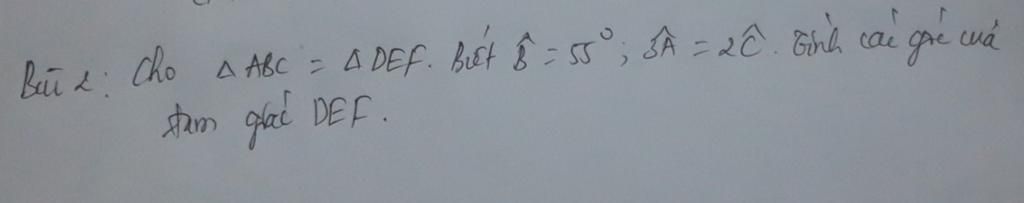 Bài 2: Cho △ ABC = △ DEF. Biết B̂ = 55°; 3Â = 2Ĉ. Tính các góc của
tam giác DEF.